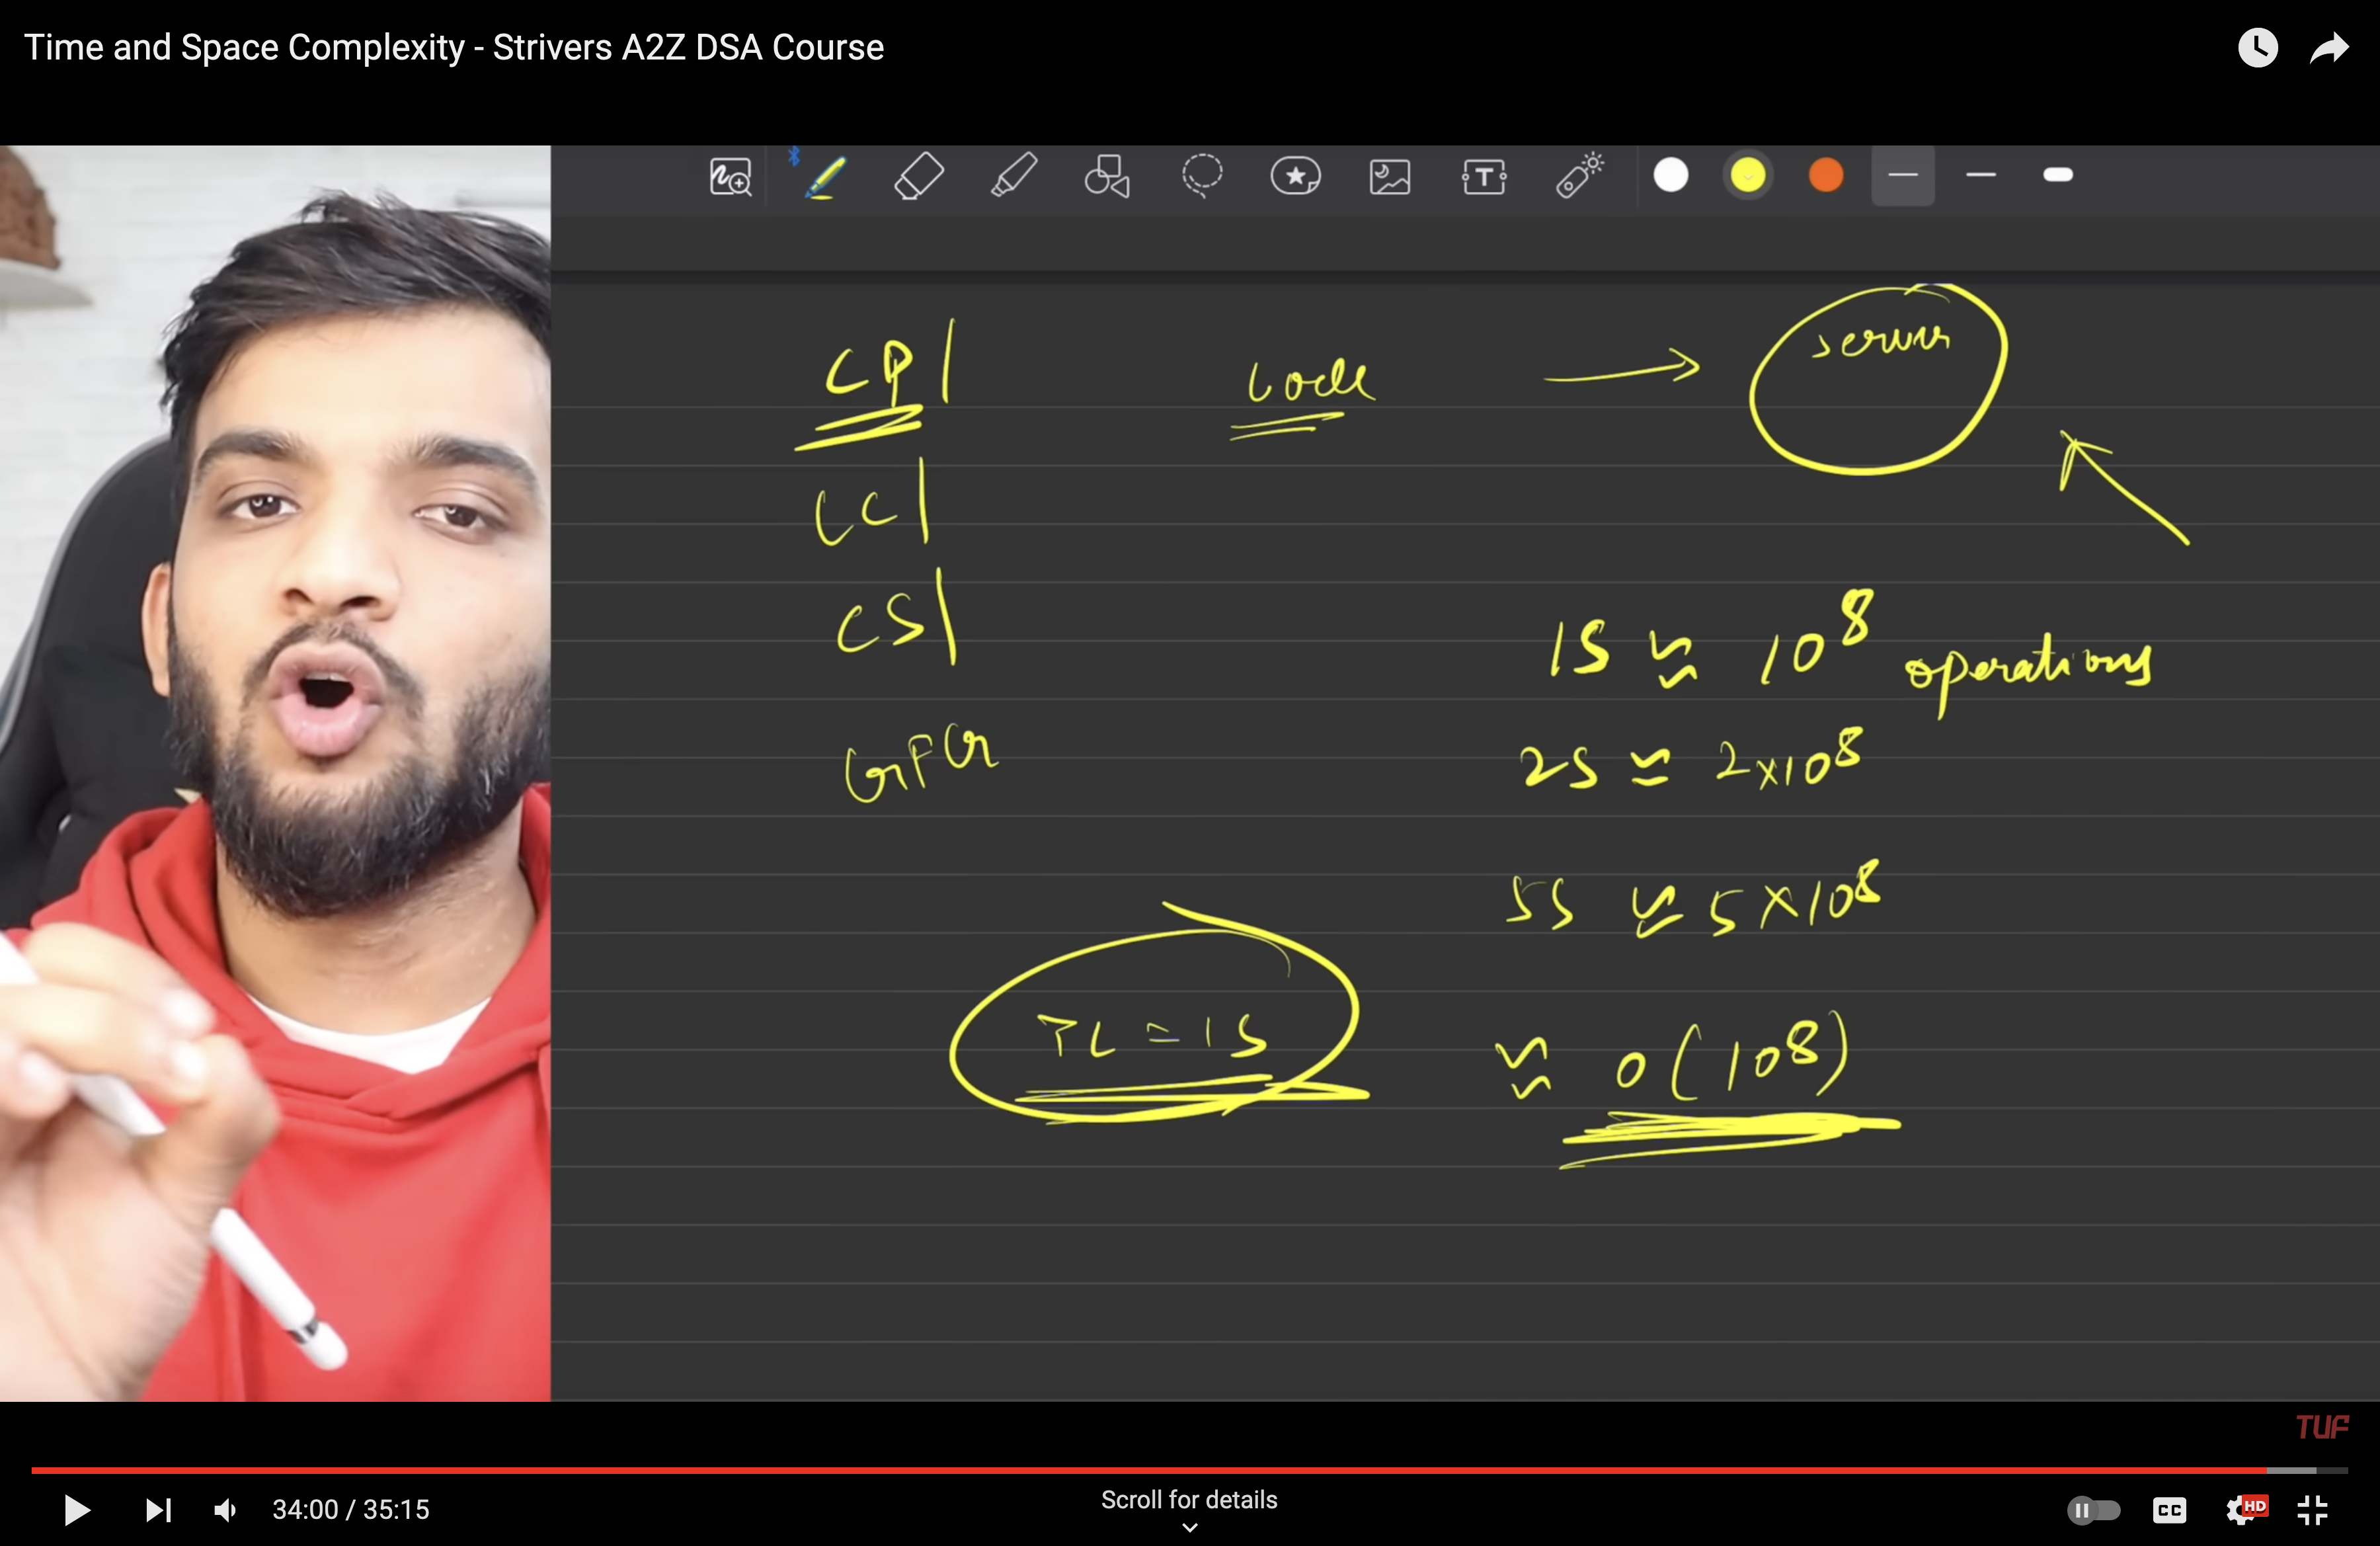 Time and Space Complexity - Strivers A2Z DSA Course
CP| code → server
LC|
CS|
GFG
1S ≈ 10^8 operations
2S ≈ 2×10^8
5S ≈ 5×10^8
TL = 1S ≈ O(10^8)
TUF
34:00 / 35:15
Scroll for details
CC
HD